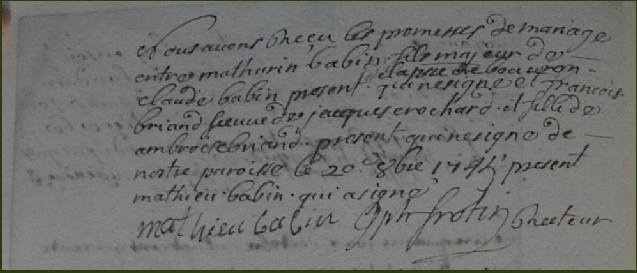 Nous avons Receu les promesses de mariage
entre matharin babin fils majeur de
claude babin present qui ne signe et francoise
de la psse de
briand veuve de jacques crochard et fille de
ambroise briand present qui ne signe de
nostre paroisse le 20e 8bre 1744 present
mathieu babin qui a signé
mathieu babin frotin Recteur